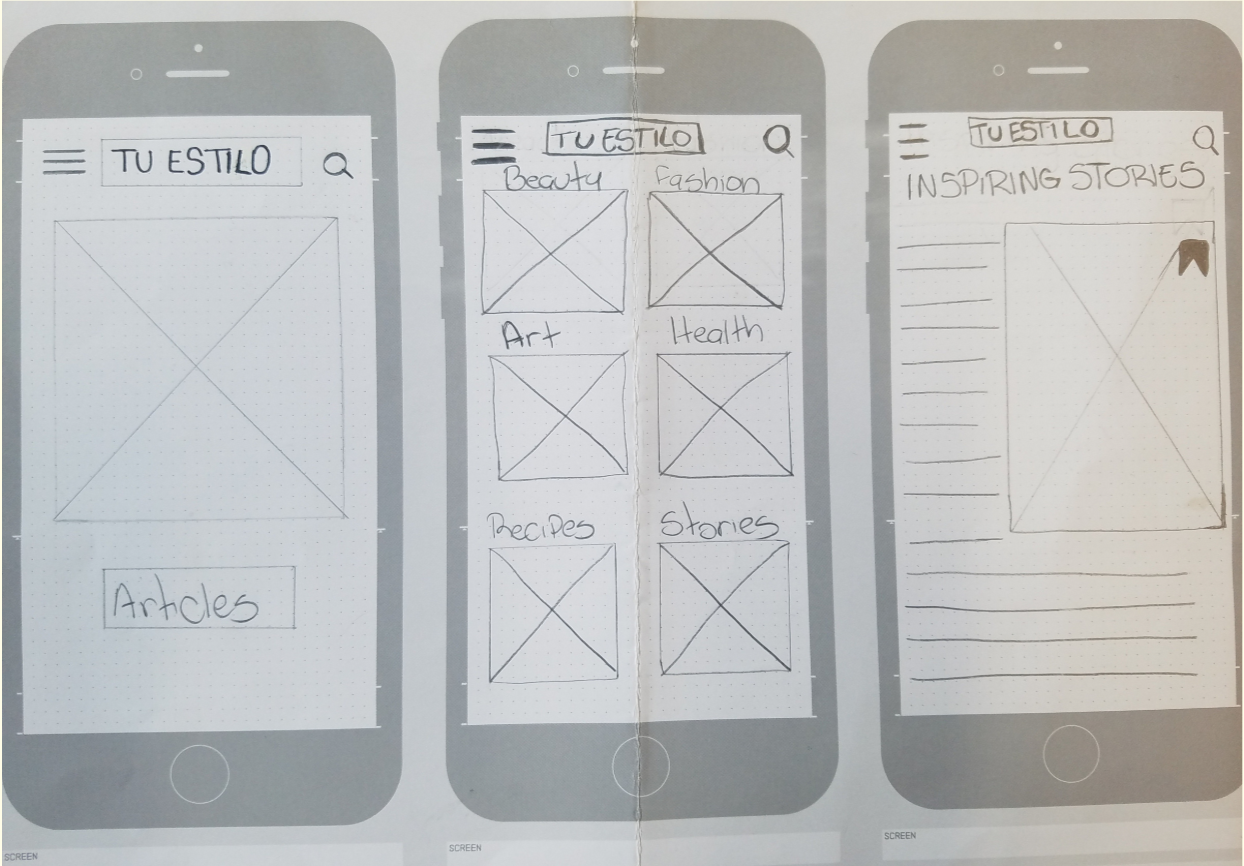 TU ESTILO
Articles
SCREEN
TU ESTILO
Beauty Fashion
Art Health
Recipes Stories
SCREEN
TU ESTILO
INSPIRING STORIES
SCREEN